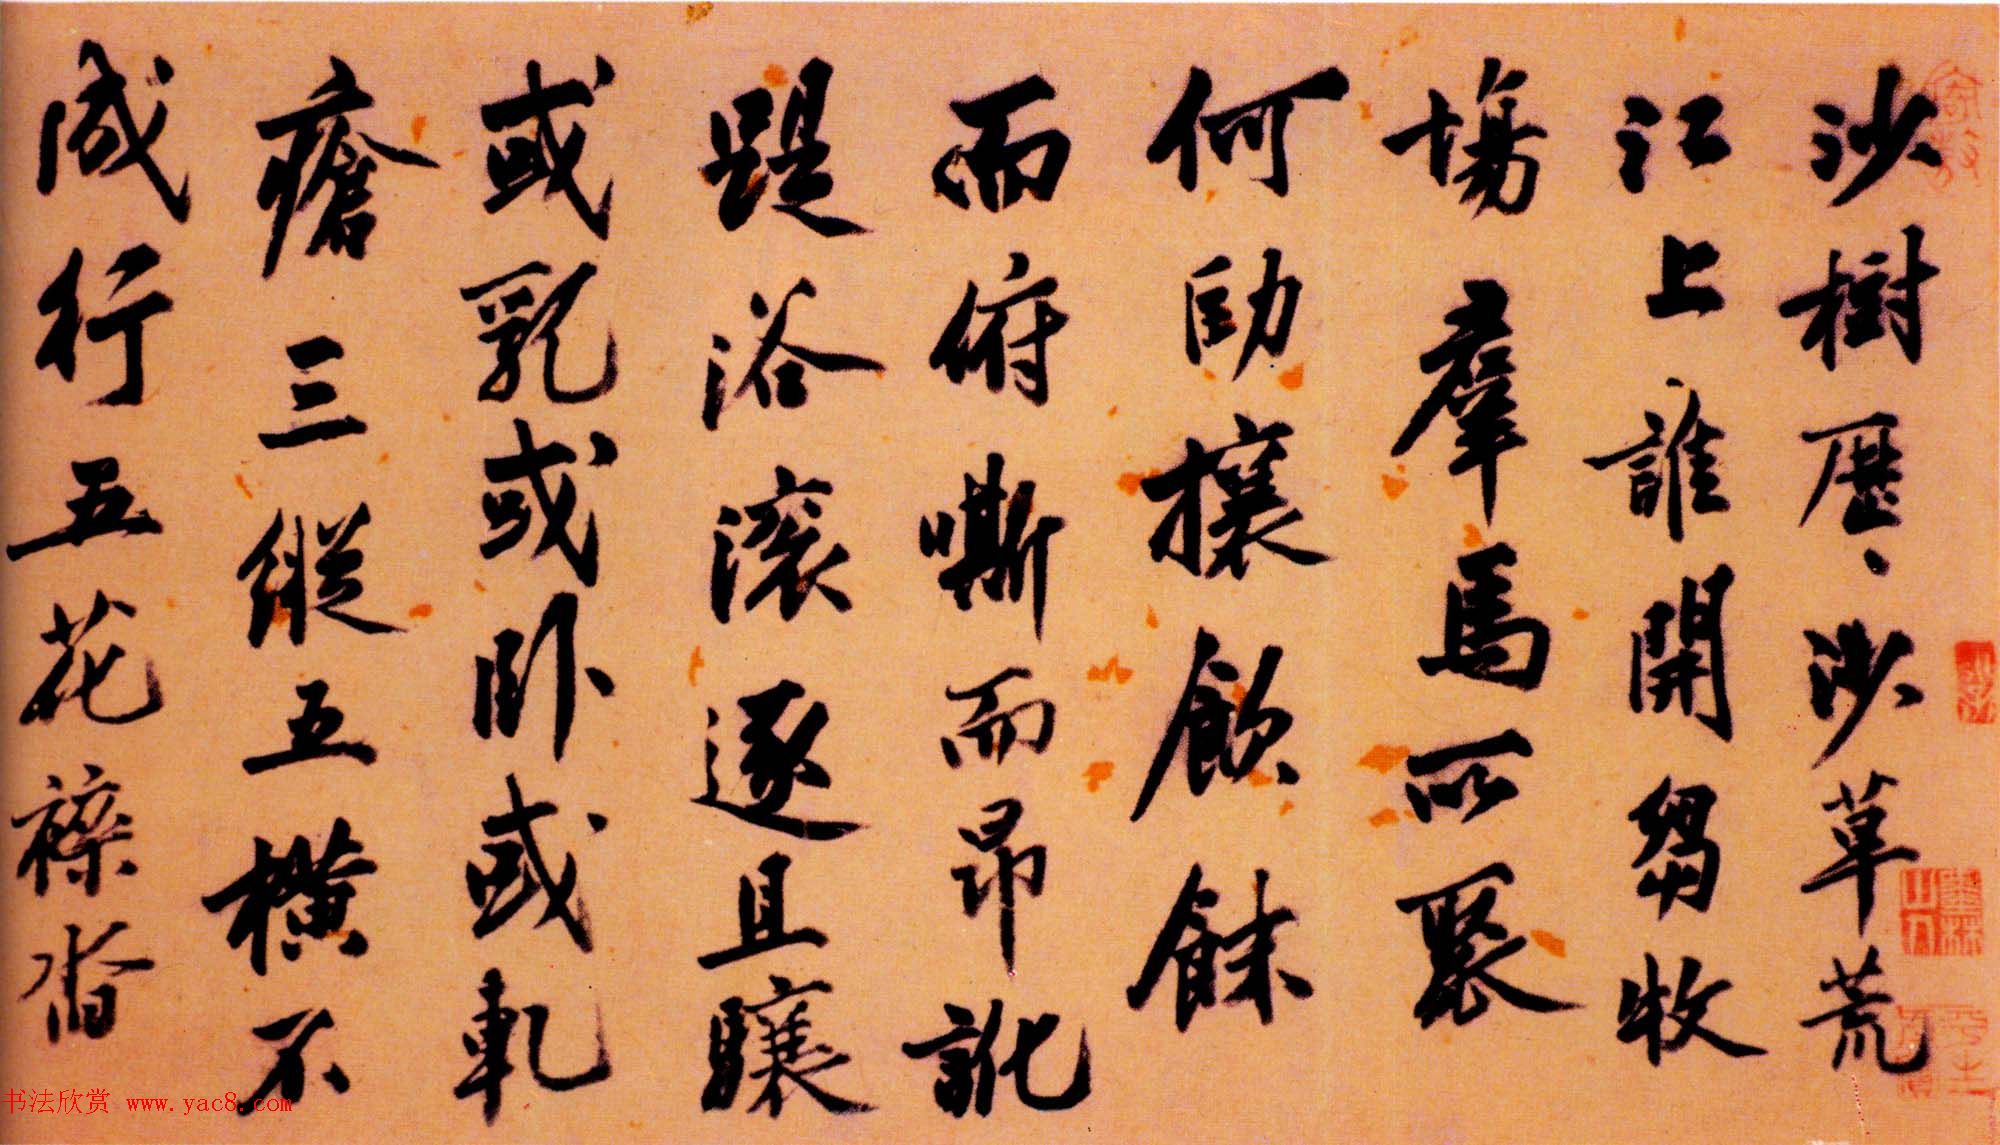 沙樹歷〻沙草荒
江上誰開芻牧
場羣馬所聚
何劻攘飲䬴
而俯嘶而昂訛
踶浴滚逐且驤
或乳或卧或軋
瘡三縱五橫不
成行五花襍沓
书法欣赏 www.yac8.com